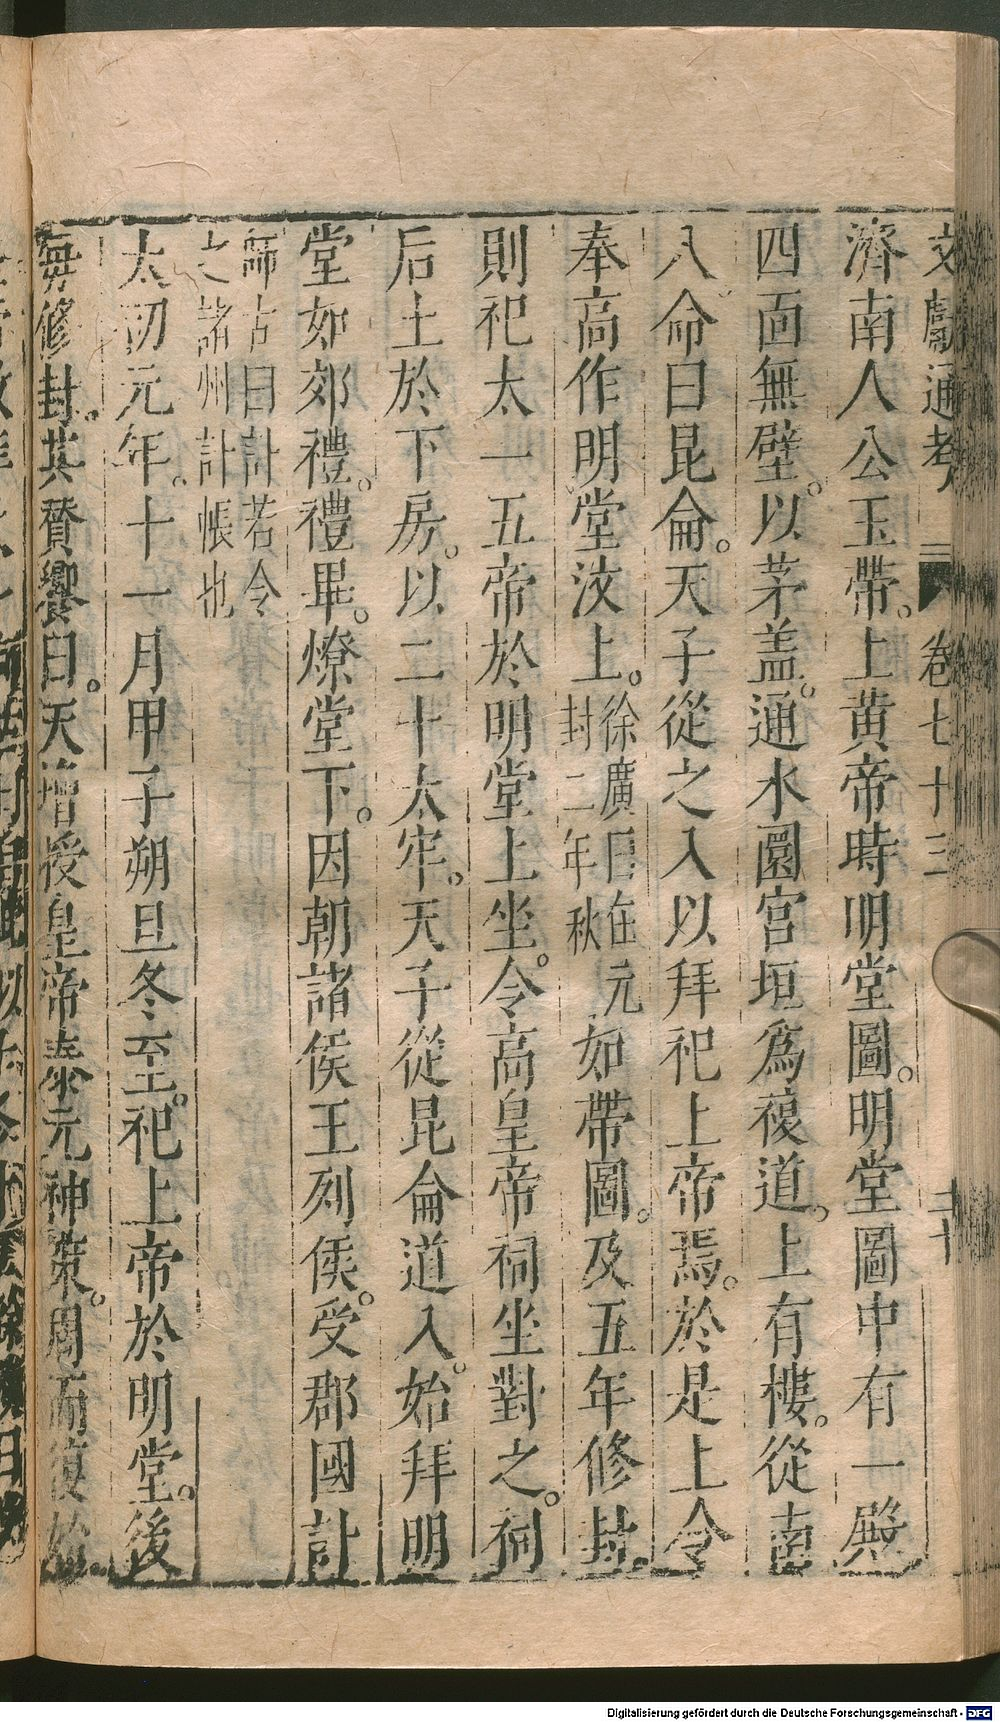 文獻通考 卷七十三 二十
濟南人公玉帶。上黄帝時明堂圖。明堂圖中有一殿
四面無壁。以茅盖。通水圜宫垣爲複道。上有樓。從南
入命曰昆侖。天子從之入以拜祀上帝焉。於是上令
奉高作明堂汶上。徐廣曰在元封二年秋如帶圖。及五年修封。
則祀太一五帝於明堂上坐。令高皇帝祠坐對之。祠
后土於下房。以二十太牢。天子從昆侖道入。始拜明
堂如郊禮。禮畢。燎堂下。因朝諸侯王列侯。受郡國計
師古曰計若今
之諸州計帳也
太初元年。十一月甲子朔旦冬至。祀上帝於明堂。後
每修封。其贊饗曰。天增授皇帝泰元神策。周而復始。
Digitalisierung gefördert durch die Deutsche Forschungsgemeinschaft - DFG